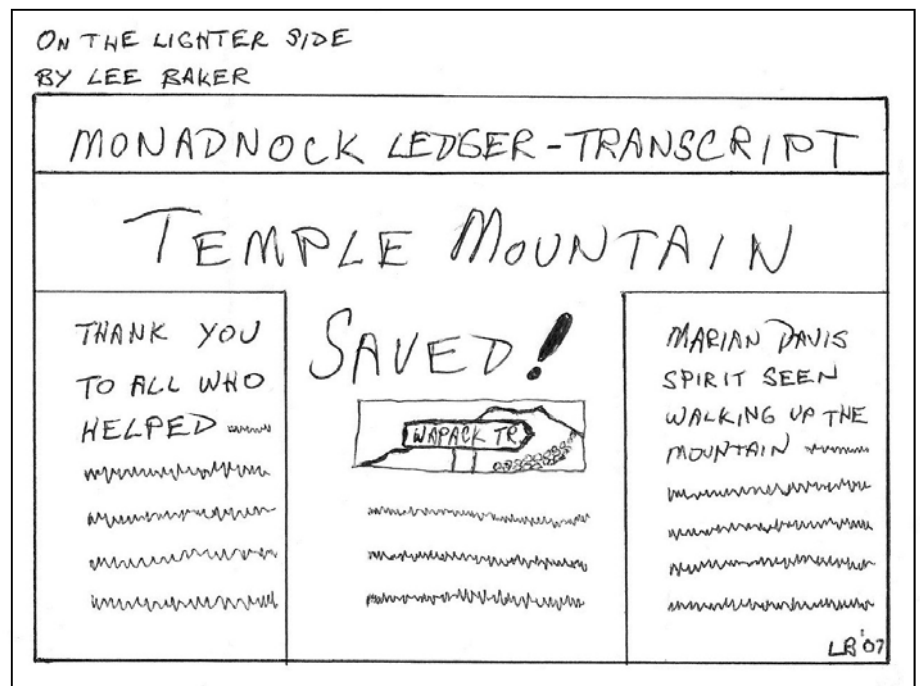 ON THE LIGHTER SIDE
BY LEE BAKER
MONADNOCK LEDGER-TRANSCRIPT
TEMPLE MOUNTAIN
SAVED!
THANK YOU
TO ALL WHO
HELPED
WAPACK TR
MARIAN DAVIS
SPIRIT SEEN
WALKING UP THE
MOUNTAIN
LB '07